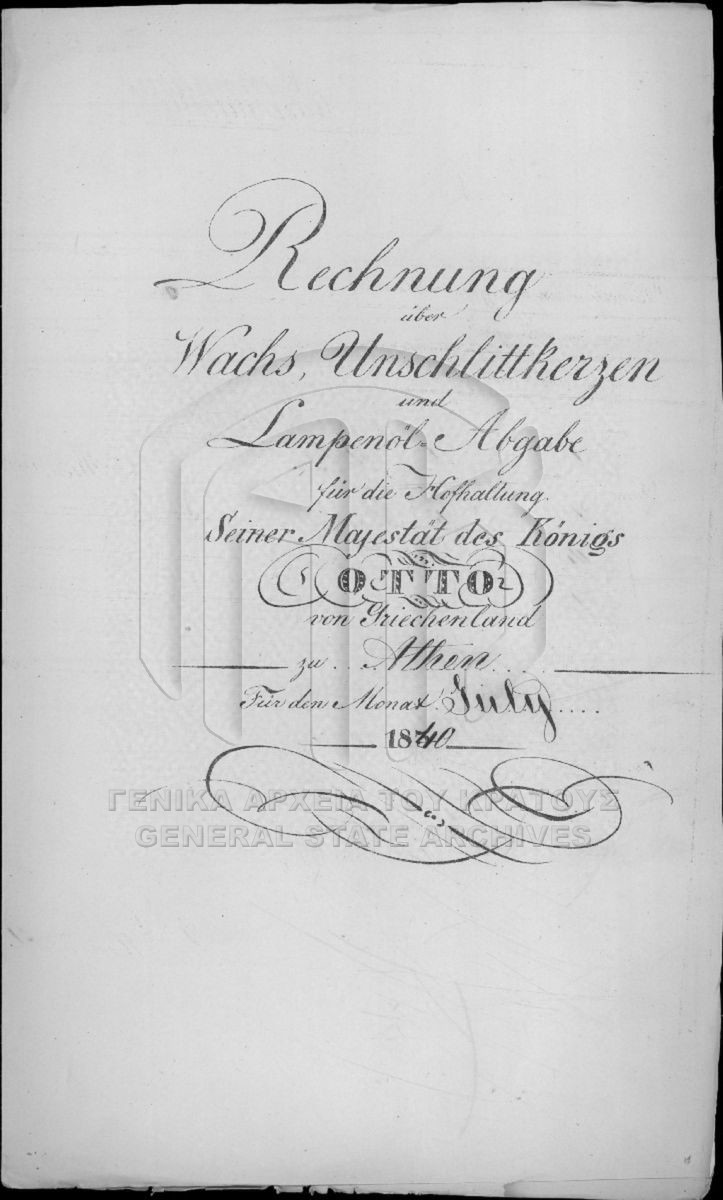 Rechnung
über
Wachs, Unschlittkerzen
und
Lampenöl-Abgabe
für die Hofhaltung.
Seiner Majestät des Königs
OTTO
von Griechenland
zu Athen
Für den Monat July
1840
ΓΕΝΙΚΑ ΑΡΧΕΙΑ ΤΟΥ ΚΡΑΤΟΥΣ
GENERAL STATE ARCHIVES